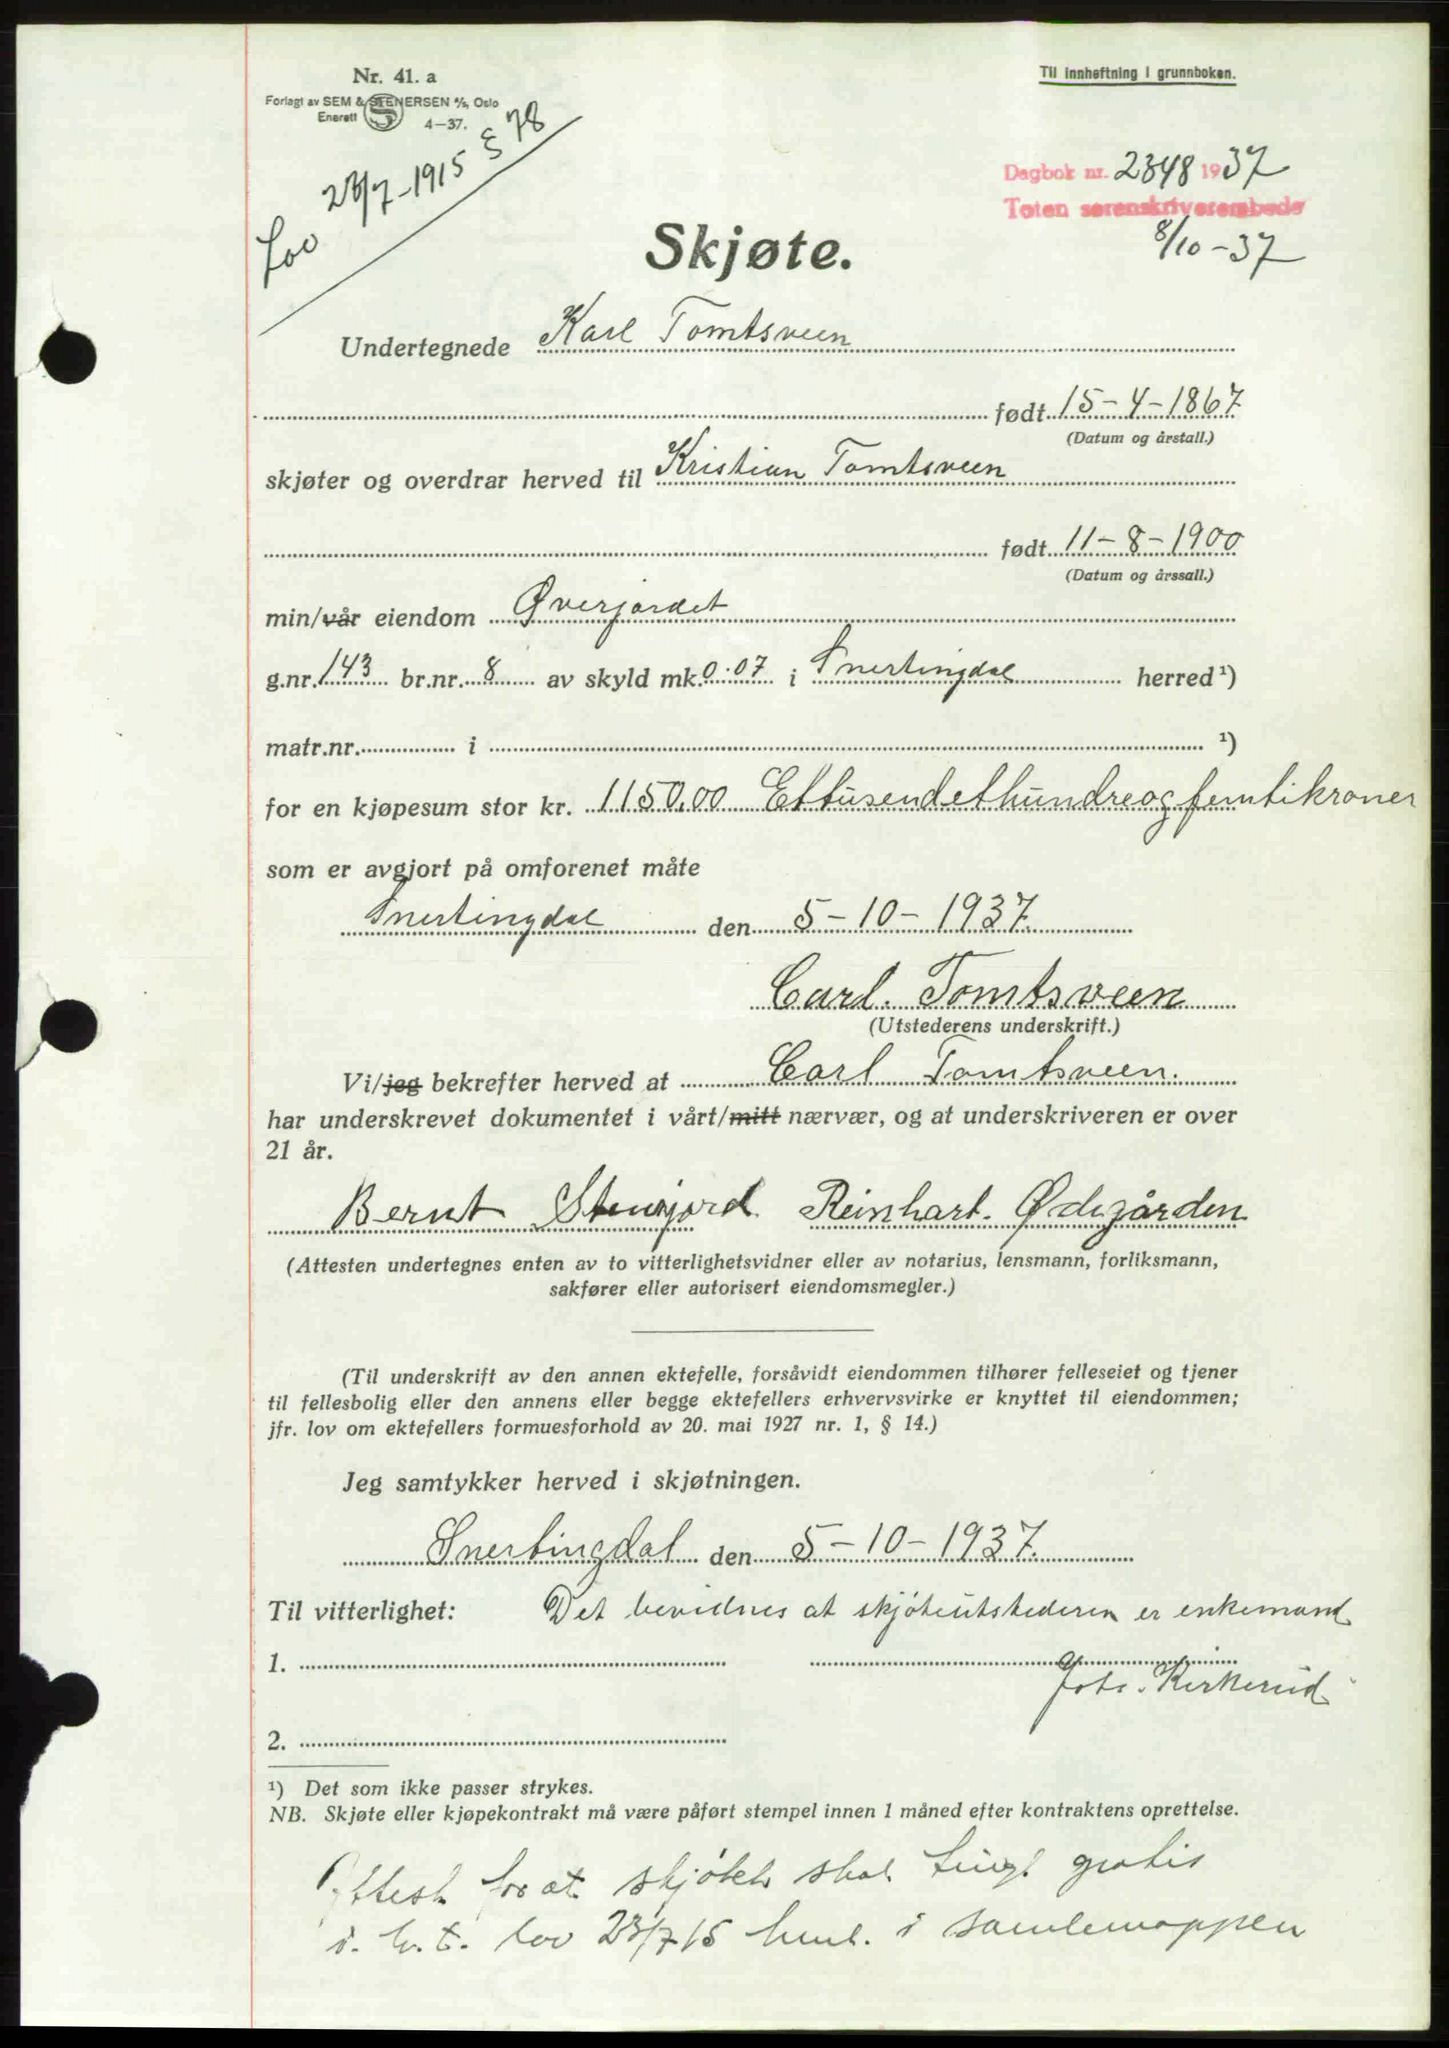 Nr. 41. a
Forlagt av SEM & STENERSEN A/S, Oslo
Enerett
4—37.
Til innheftning i grunnboken.
Lov 23/7-1915 § 78
Dagbok nr. 2348 1937
Toten sorenskriverembede
8/10-37
Skjøte.
Undertegnede Karl Tomtsveen
født 15-4-1867
(Datum og årstall.)
skjøter og overdrar herved til Kristian Tomtsveen
født 11-8-1900
(Datum og årssall.)
min/vår eiendom Øverjordet
g.nr. 143 br.nr. 8 av skyld mk. 0.07 i Snertingdal herred ¹)
matr.nr. i ¹)
for en kjøpesum stor kr. 1150.00 Ettusendethundreogfemtikroner
som er avgjort på omforenet måte
Snertingdal den 5-10-1937.
Carl. Tomtsveen
(Utstederens underskrift.)
Vi/jeg bekrefter herved at Carl Tomtsveen.
har underskrevet dokumentet i vårt/mitt nærvær, og at underskriveren er over
21 år.
Bernt Stensjord Reinhart. Ødegården
(Attesten undertegnes enten av to vitterlighetsvidner eller av notarius, lensmann, forliksmann,
sakfører eller autorisert eiendomsmegler.)
(Til underskrift av den annen ektefelle, forsåvidt eiendommen tilhører felleseiet og tjener
til fellesbolig eller den annens eller begge ektefellers erhvervsvirke er knyttet til eiendommen;
jfr. lov om ektefellers formuesforhold av 20. mai 1927 nr. 1, § 14.)
Jeg samtykker herved i skjøtningen.
Snertingdal den 5-10-1937.
Til vitterlighet: Det bevidnes at skjøteutstederen er enkemand
1.
Kirkerud
2.
¹) Det som ikke passer strykes.
NB. Skjøte eller kjøpekontrakt må være påført stempel innen 1 måned efter kontraktens oprettelse.
Attest for at skjøtet skal tingl gratis
i. h. t. lov 23/7 15 henl. i samlemappen